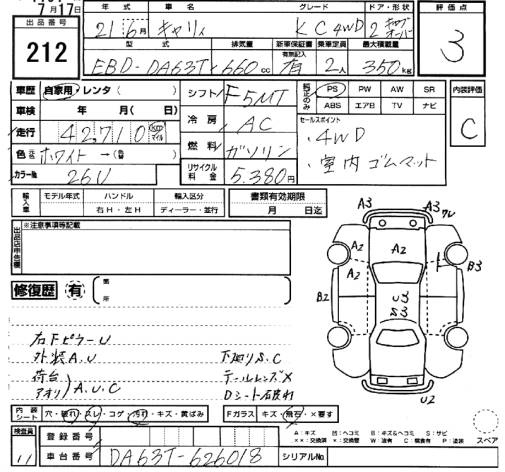 7月17日
出品番号
212
年式 車名 グレード ドア・形状
21 6月 キャリィ KC4WD 2 キャブオーバー
型式 排気量 新車保証書 乗車定員 最大積載量
有無記入
EBD-DA63T 660cc 有 2人 350kg
評価点
3
車歴 自家用・レンタ( )
車検 年 月( 日)
走行 42,710 km マイル
色 元色 ホワイト→(替 )
カラー№ 26U
シフト F5MT
冷房 AC
燃料 ガソリン
リサイクル料金 5,380円
純正のみ PS PW AW SR
ABS エアB TV ナビ
セールスポイント
・4WD
・室内ゴムマット
内装評価
C
輸入車 モデル年式 ハンドル 輸入区分
右H・左H ディーラー・並行
書類有効期限
月 日迄
出品店申告欄
※注意事項等記載
修復歴 有 箇所
右下ピラーU
外装A,U 下廻りS,C
荷台 テールレンズ×
アオリ A,U,C Dシート破れ
A3 A3 7U
A2
A2 A2
B3
B2
U3
S3
U2
内装シート 穴・破れ・スレ・コゲ・汚れ・キズ・黄ばみ
Fガラス キズ・飛石・×要す
検査員
11
登録番号
車台番号 DA63T-626018
シリアル№
A:キズ U:ヘコミ B:キズ&ヘコミ S:サビ
××:交換済 ×:交換要 W:波有 C:腐食有 P:塗装
スペア